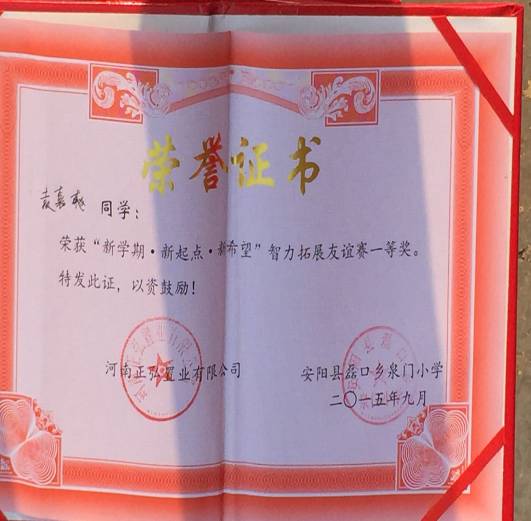 荣誉证书
嘉 同学：
荣获“新学期·新起点·新希望”智力拓展友谊赛一等奖。
特发此证，以资鼓励！
河南正弘置业有限公司
安阳县磊口乡泉门小学
二〇一五年九月